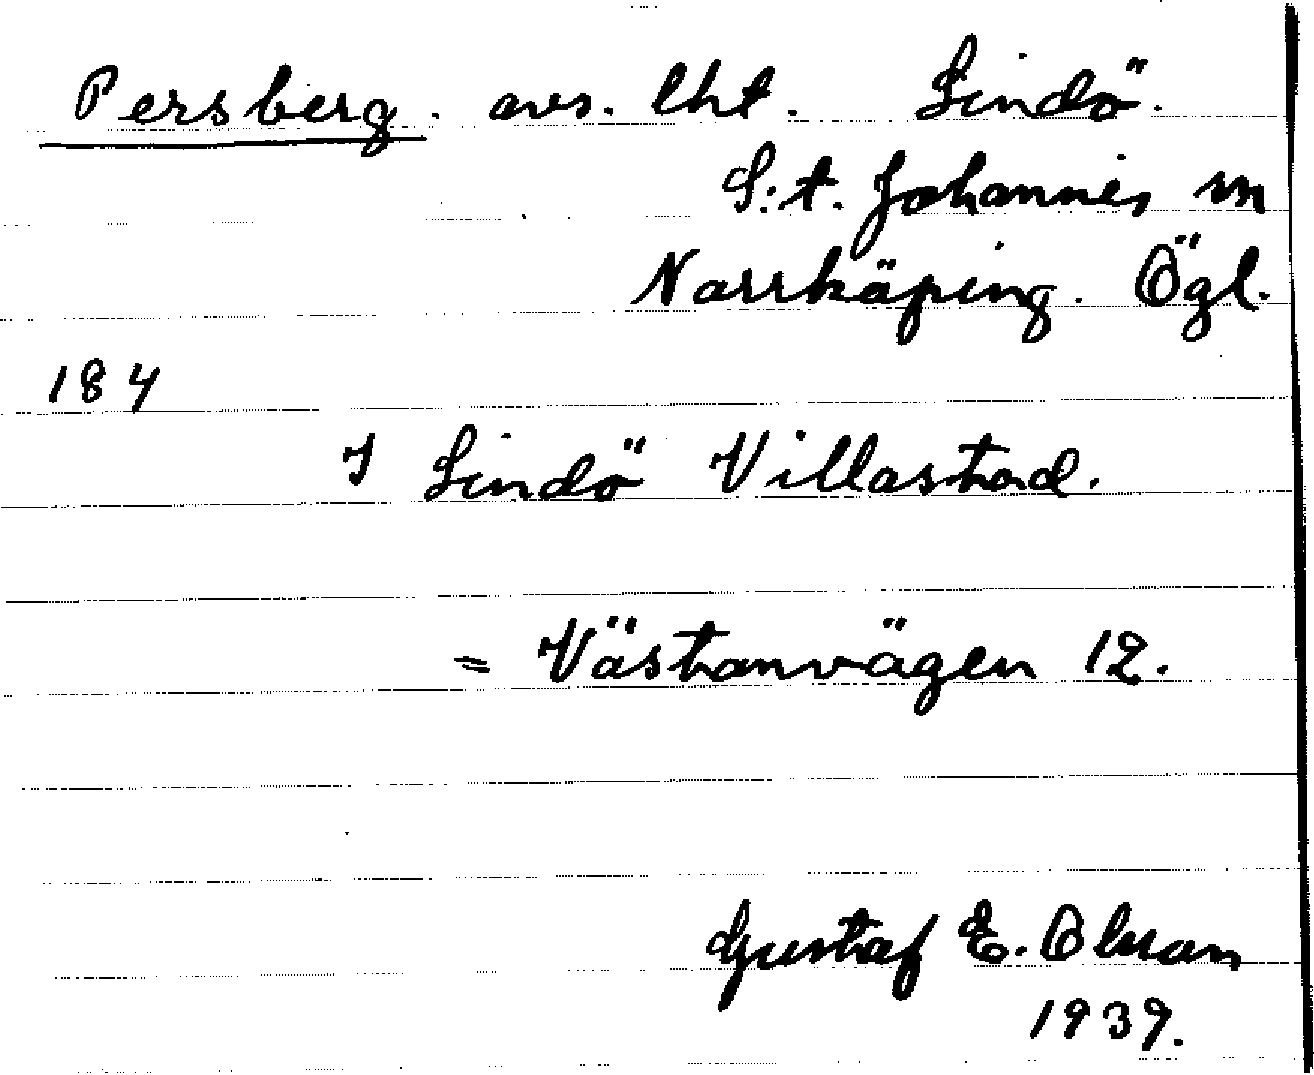 Persberg. avs. lht. Lindö.
S:t. Johannes sn
Norrköping. Ögl.
184
I Lindö Villastad.
= Västanvägen 12.
Gustaf E. Olsson
1939.